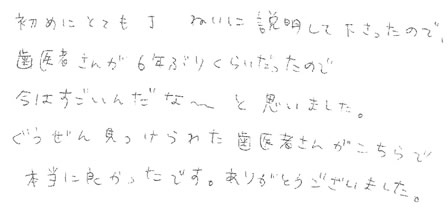 初めにとても丁ねいに説明して下さったので、
歯医者さんが6年ぶりくらいだったので
今はすごいんだな〜と思いました。
ぐうぜん見つけられた歯医者さんがこちらで
本当に良かったです。ありがとうございました。